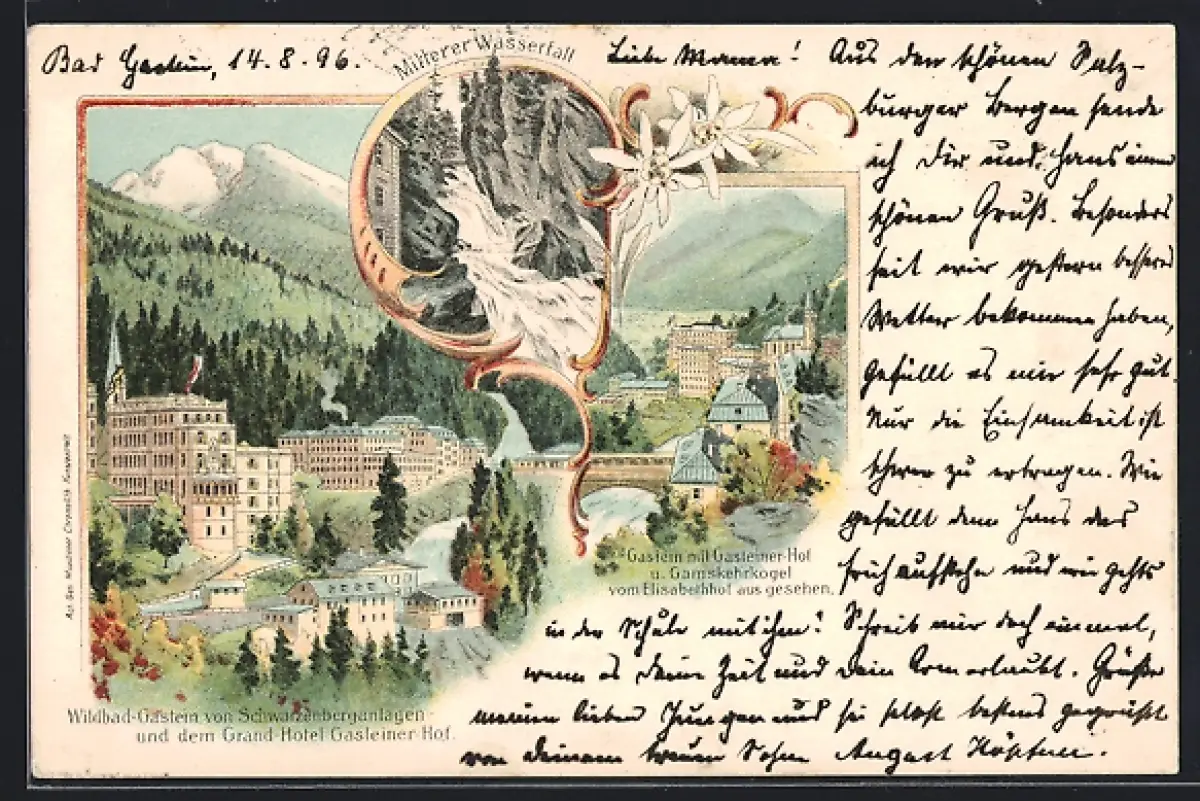 Bad Gastein, 14.8.96.
Mitterer Wasserfall
Liebe Mama! Aus den schönen Salz-
burger Bergen sende
ich Dir und Hans einen
schönen Gruß. Besonders
seit wir gestern besseres
Wetter bekommen haben,
gefällt es mir sehr gut.
Nur die Einsamkeit ist
schwer zu ertragen. Wie
gefällt dem Hans das
frühaufstehn und wie gehts
in der Schule mit ihm? Schreib mir doch einmal,
wenn es Deine Zeit und Dein Arm erlaubt. Grüße
meinen lieben Jungen und sei selbst bestens gegrüßt
von Deinem treuen Sohn August
Gastein mit Gasteiner-Hof
u. Gamskehrkogel
vom Elisabethhof aus gesehen.
Wildbad-Gastein von Schwarzenberganlagen
und dem Grand Hotel Gasteiner Hof.